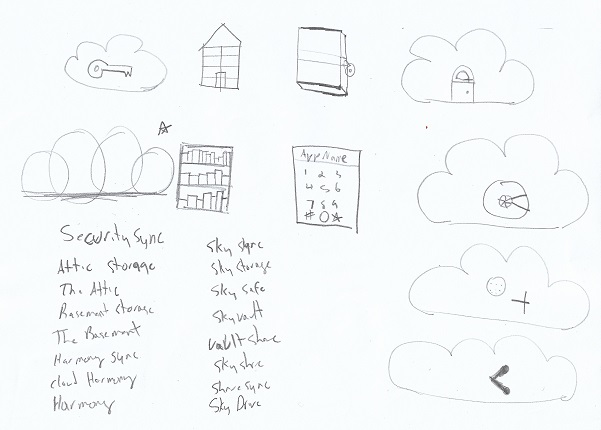 App Name
1 2 3
4 5 6
7 8 9
# 0
Security Sync
Attic Storage
The Attic
Basement Storage
The Basement
Harmony Sync
Cloud Harmony
Harmony
Sky Sync
Sky Storage
Sky Safe
Sky vault
vault Share
Share Sync
Sky Drive